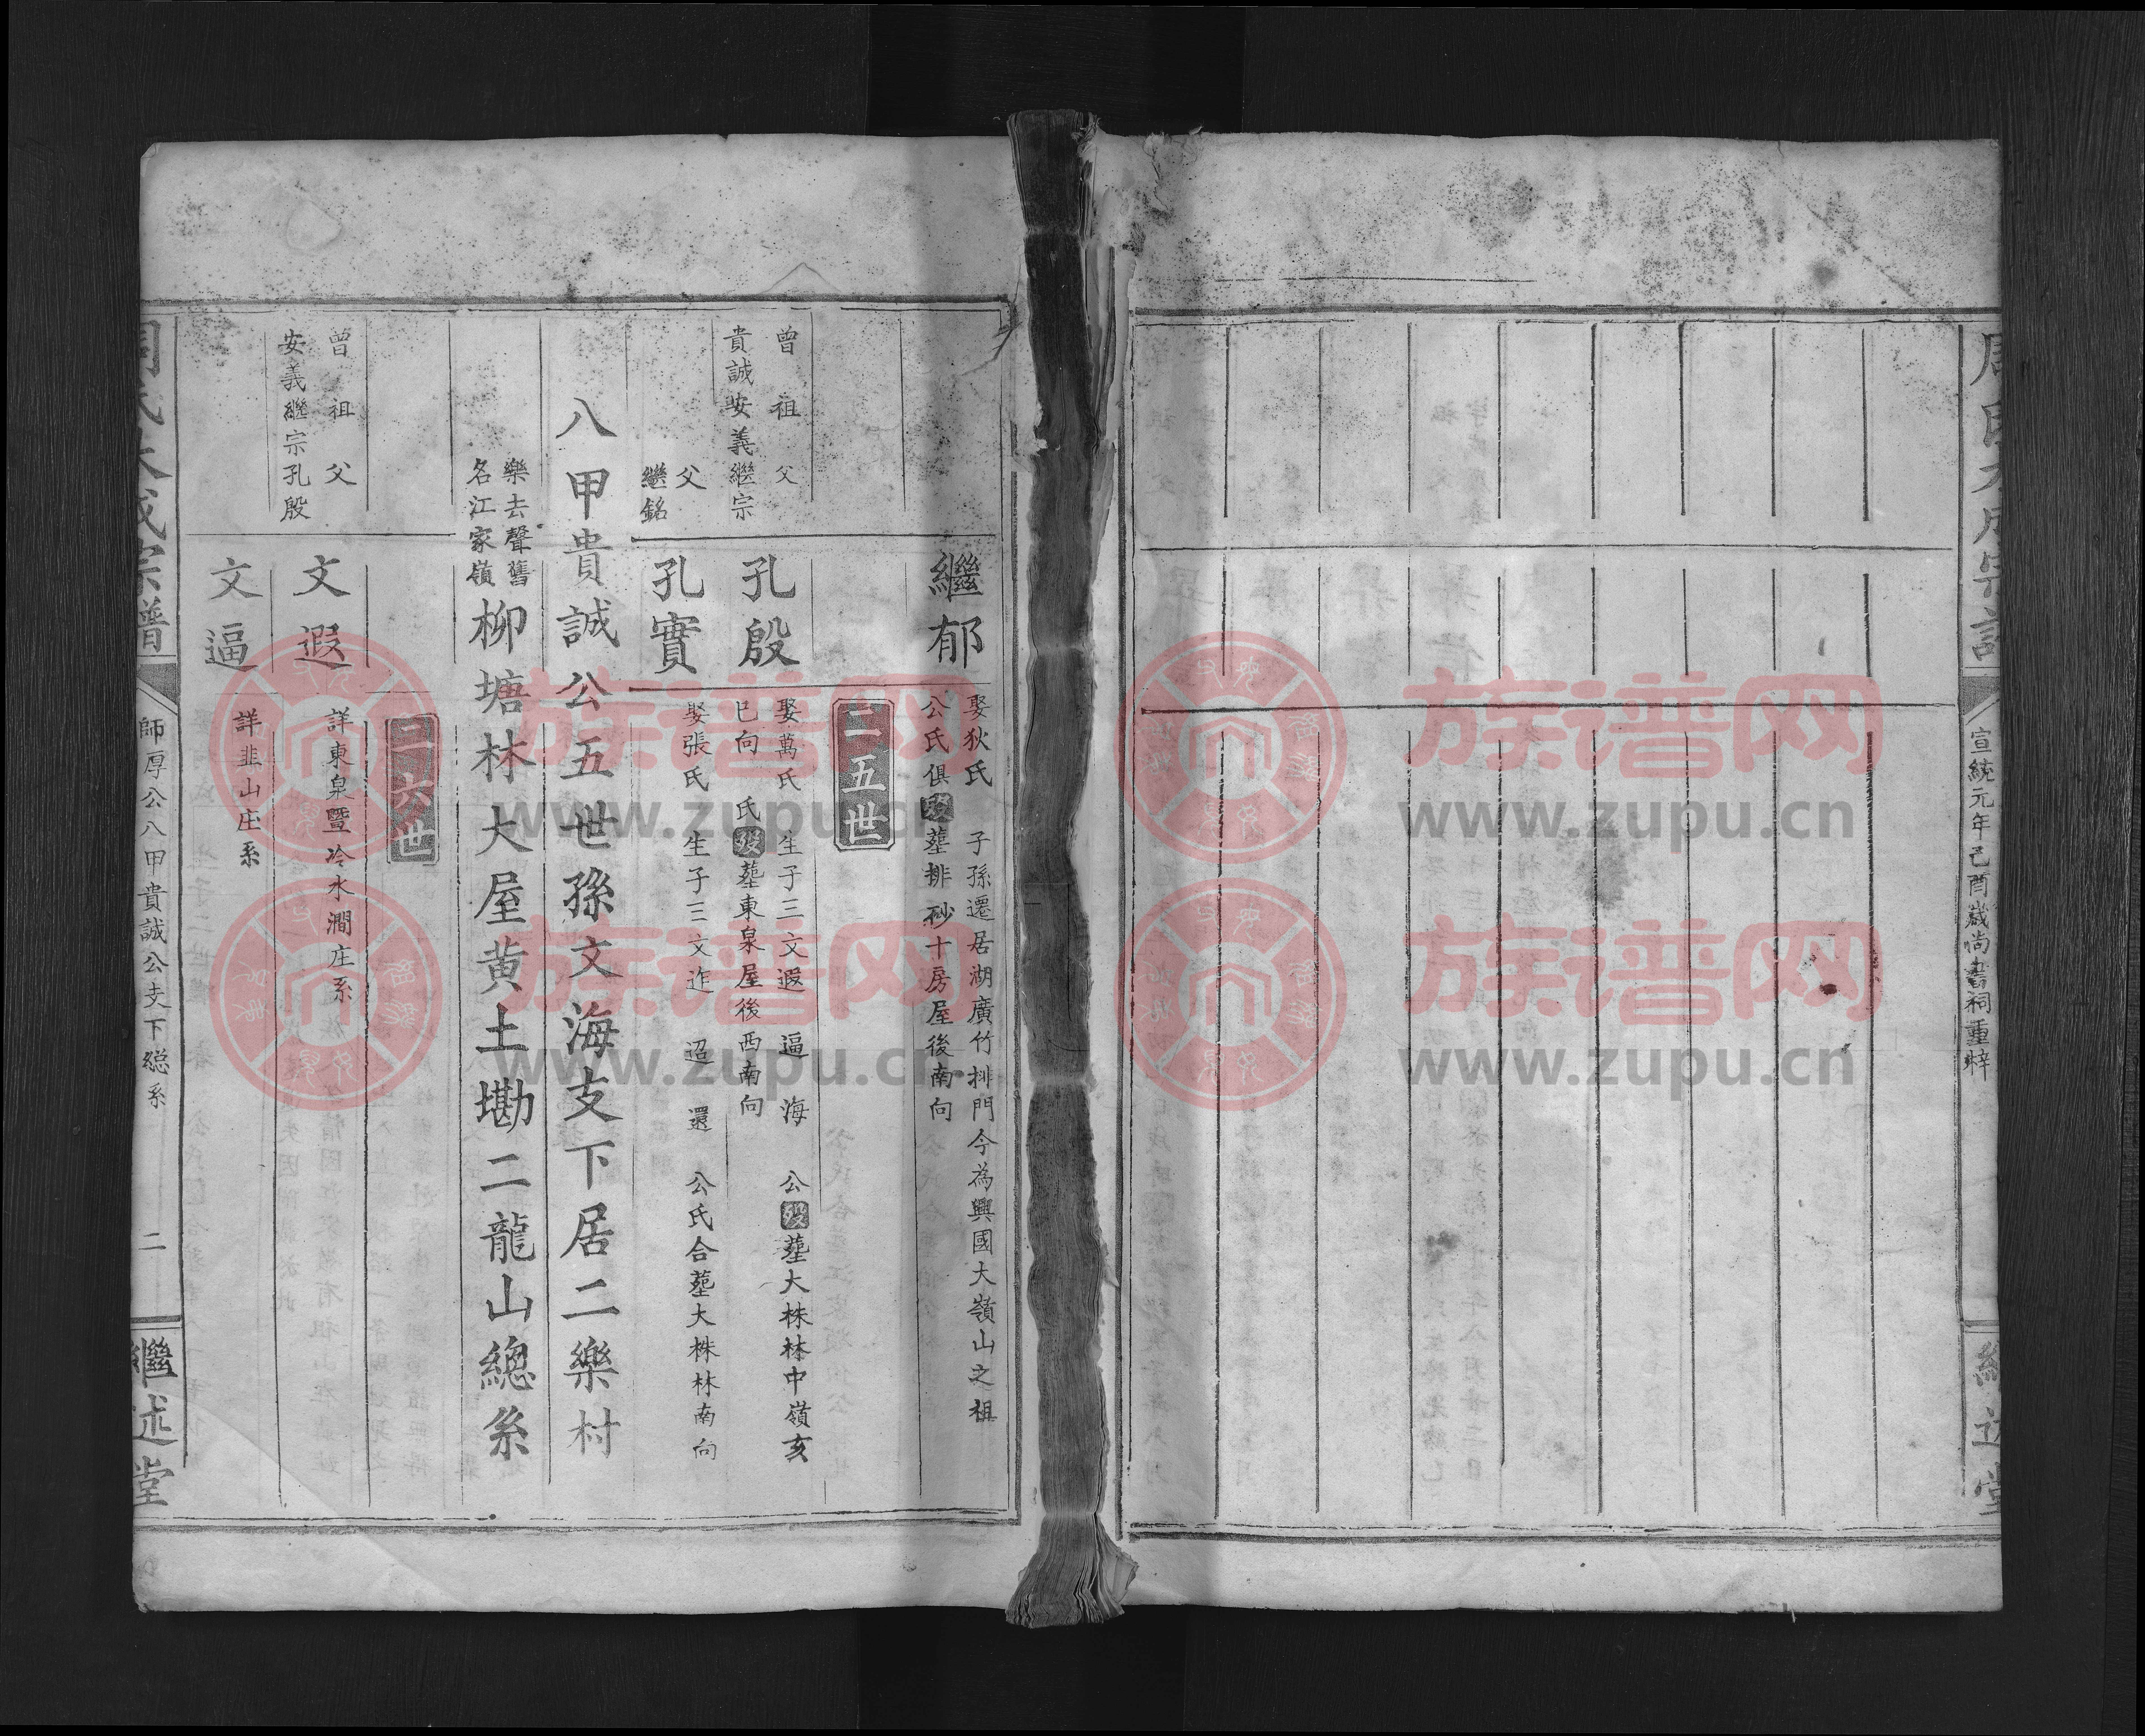 宣統元年己酉歲尚書祠重梓
繼郁
娶狄氏 子孫遷居湖廣竹排門今為興國大嶺山之祖
公氏俱歿塟排砂十房屋後南向
二五世
曾祖父
貴誠安義繼宗
孔殷
娶萬氏 生子三文遐 逼 海 公歿塟大株林中嶺亥
巳向 氏歿塟東泉屋後西南向
父
繼銘
孔實
娶張氏 生子三文迮 迢 還 公氏合塟大株林南向
八甲貴誠公五世孫文海支下居二樂村
樂去聲舊
名江家嶺
柳塘林大屋黄土墈二龍山總系
二六世
曾祖父
安義繼宗孔殷
文遐
詳東泉暨冷水澗庄系
文逼
詳韭山庄系
師厚公八甲貴誠公支下総系
二
繼述堂
族谱网
www.zupu.cn
族谱网
www.zupu.cn
族谱网
www.zupu.cn
族谱网
www.zupu.cn